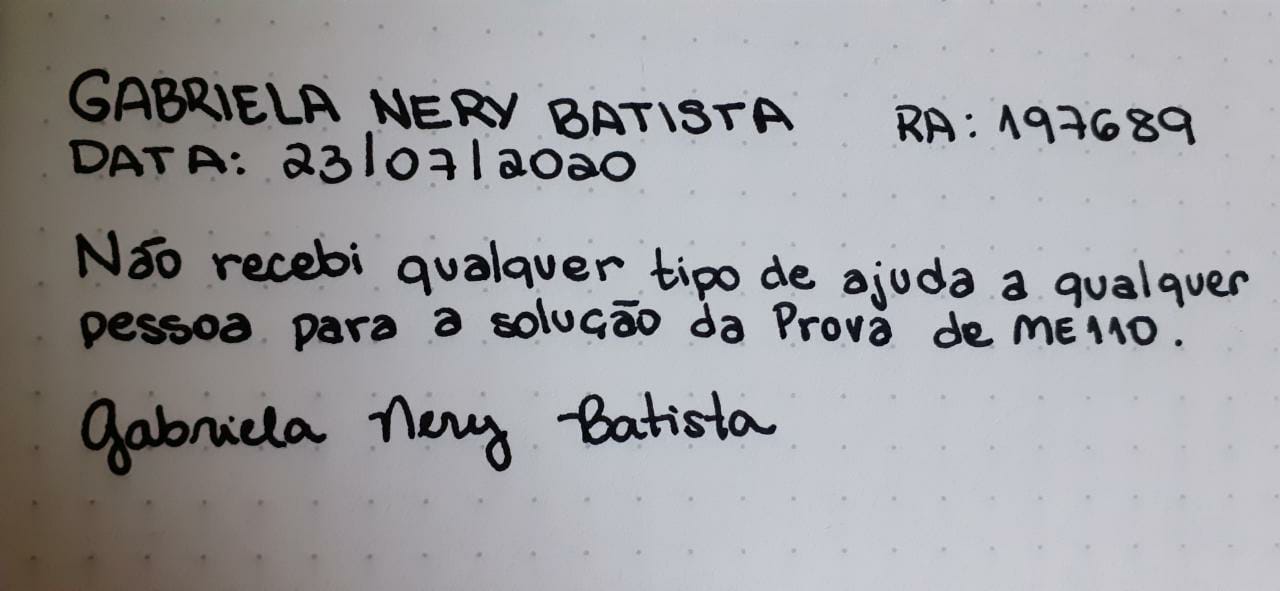 GABRIELA NERY BATISTA RA: 197689
DATA: 23/07/2020
Não recebi qualquer tipo de ajuda a qualquer
pessoa para a solução da Prova de ME110.
Gabriela Nery Batista